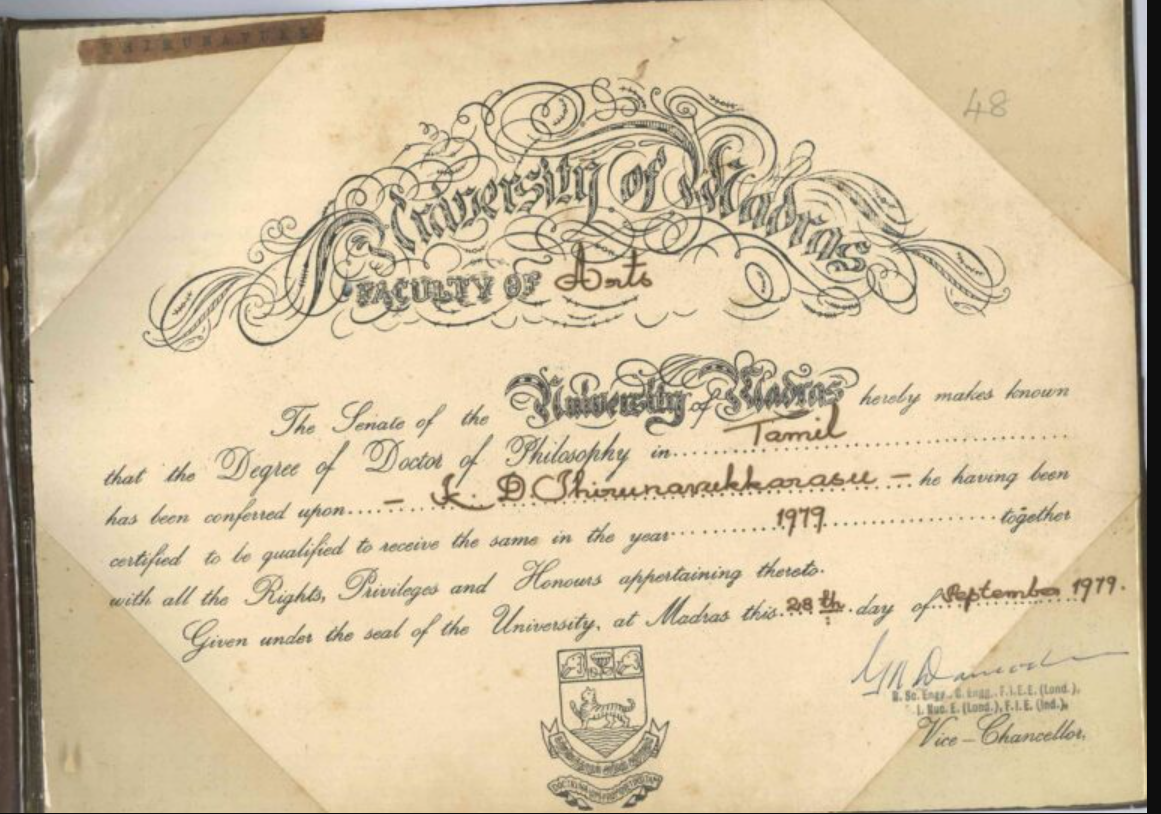 48
University of Madras
FACULTY OF Arts
The Senate of the University of Madras hereby makes known
that the Degree of Doctor of Philosophy in Tamil
has been conferred upon – K. D. Thirunavukkarasu – he having been
certified to be qualified to receive the same in the year 1979 together
with all the Rights, Privileges and Honours appertaining thereto.
Given under the seal of the University, at Madras this 28th day of September 1979.
B. Sc. Engg., C. Engg., F.I.E.E. (Lond.),
I. Nuc. E. (Lond.), F.I.E. (Ind.),
Vice-Chancellor.